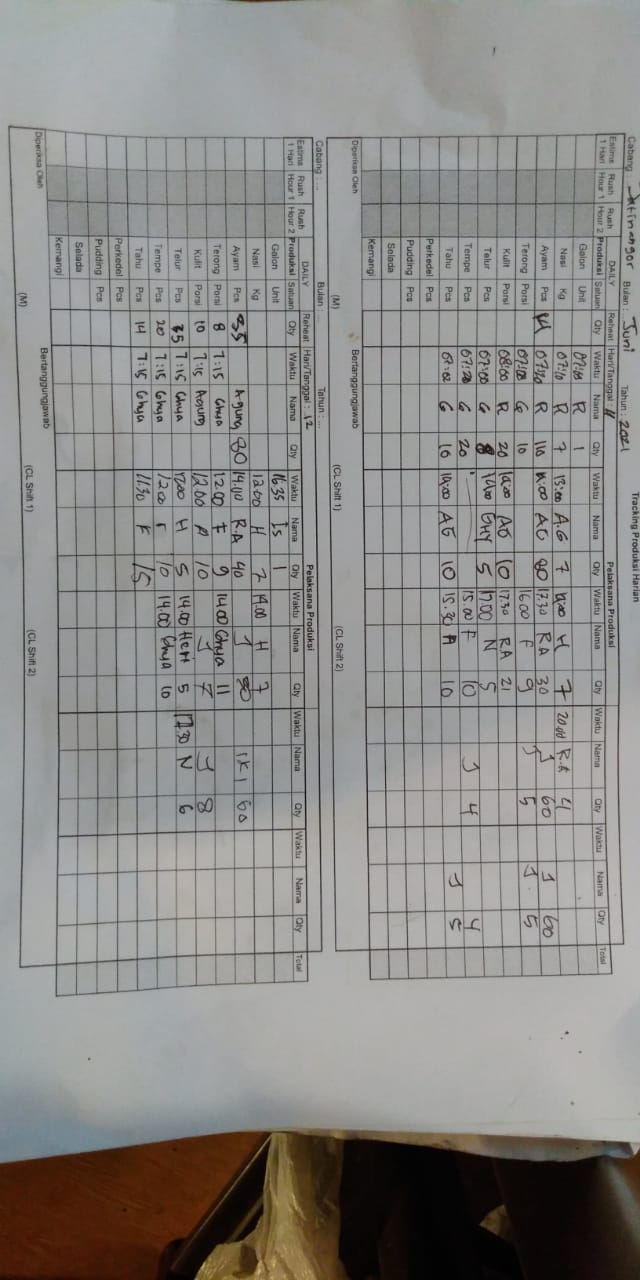 Tracking Produksi Harian
Cabang : Jatinangor Bulan : Juni Tahun : 2021
Estima 1 Hari Rush Hour 1 Rush Hour 2 DAILY Produksi Satuan Reheat Qty Hari/Tanggal : 11 Pelaksana Produksi
Waktu Nama Qty Waktu Nama Qty Waktu Nama Qty Waktu Nama Qty Waktu Nama Qty Total
Galon Unit 07:10 R 1
Nasi Kg 07:10 R 7 13:00 A.G 7 H 7 20.00 R.A 4
Ayam Pcs R 110 AG 80 17.30 RA 30 J 60 J 60
Terong Porsi G 10 16.00 F 9 J 5 J 5
Kulit Porsi 08:00 R 20 14.00 AG 10 17.30 RA 21
Telur Pcs 07:00 G 8 14.00 GHY 5 17.00 N 5
Tempe Pcs G 20 15.00 F 10 J 4 4
Tahu Pcs G 10 14.00 AG 10 15.30 A 10 J 5
Perkedel Pcs
Pudding Pcs
Selada
Kemangi
Diperiksa Oleh Bertanggungjawab
(M) (CL Shift 1) (CL Shift 2)
Cabang ... Bulan : ... Tahun : ...
Estima 1 Hari Rush Hour 1 Rush Hour 2 DAILY Produksi Satuan Reheat Qty Hari/Tanggal : 12 Pelaksana Produksi
Waktu Nama Qty Waktu Nama Qty Waktu Nama Qty Waktu Nama Qty Waktu Nama Qty Total
Galon Unit 16.35 Is 1
Nasi Kg 12.00 H 7 14.00 H 7
Ayam Pcs 35 Agung 80 14.00 R.A 40 J 80 1K1 60
Terong Porsi 8 7:15 Ghya 12.00 F 9 14.00 Ghya 11
Kulit Porsi 10 7:15 Agung 12.00 A 10 J 7 J 8
Telur Pcs 35 7:15 Ghya H 5 14.00 Heri 5 17.30 N 6
Tempe Pcs 20 7:15 Ghya 12.00 F 10 14.00 Ghya 10
Tahu Pcs 14 7:15 Ghya 11.30 F 15
Perkedel Pcs
Pudding Pcs
Selada
Kemangi
Diperiksa Oleh Bertanggungjawab
(M) (CL Shift 1) (CL Shift 2)